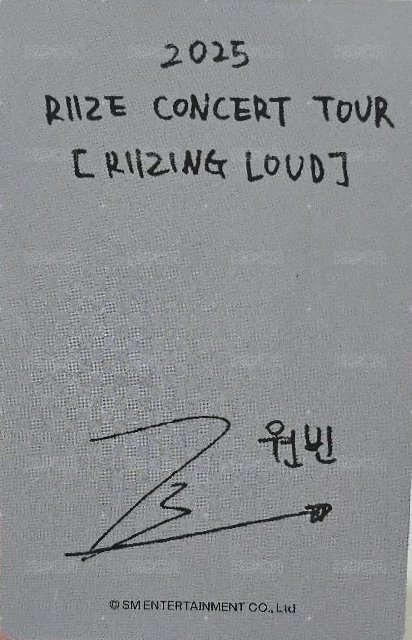 2025
RIIZE CONCERT TOUR
[RIIZING LOUD]
원빈
© SM ENTERTAINMENT CO., Ltd